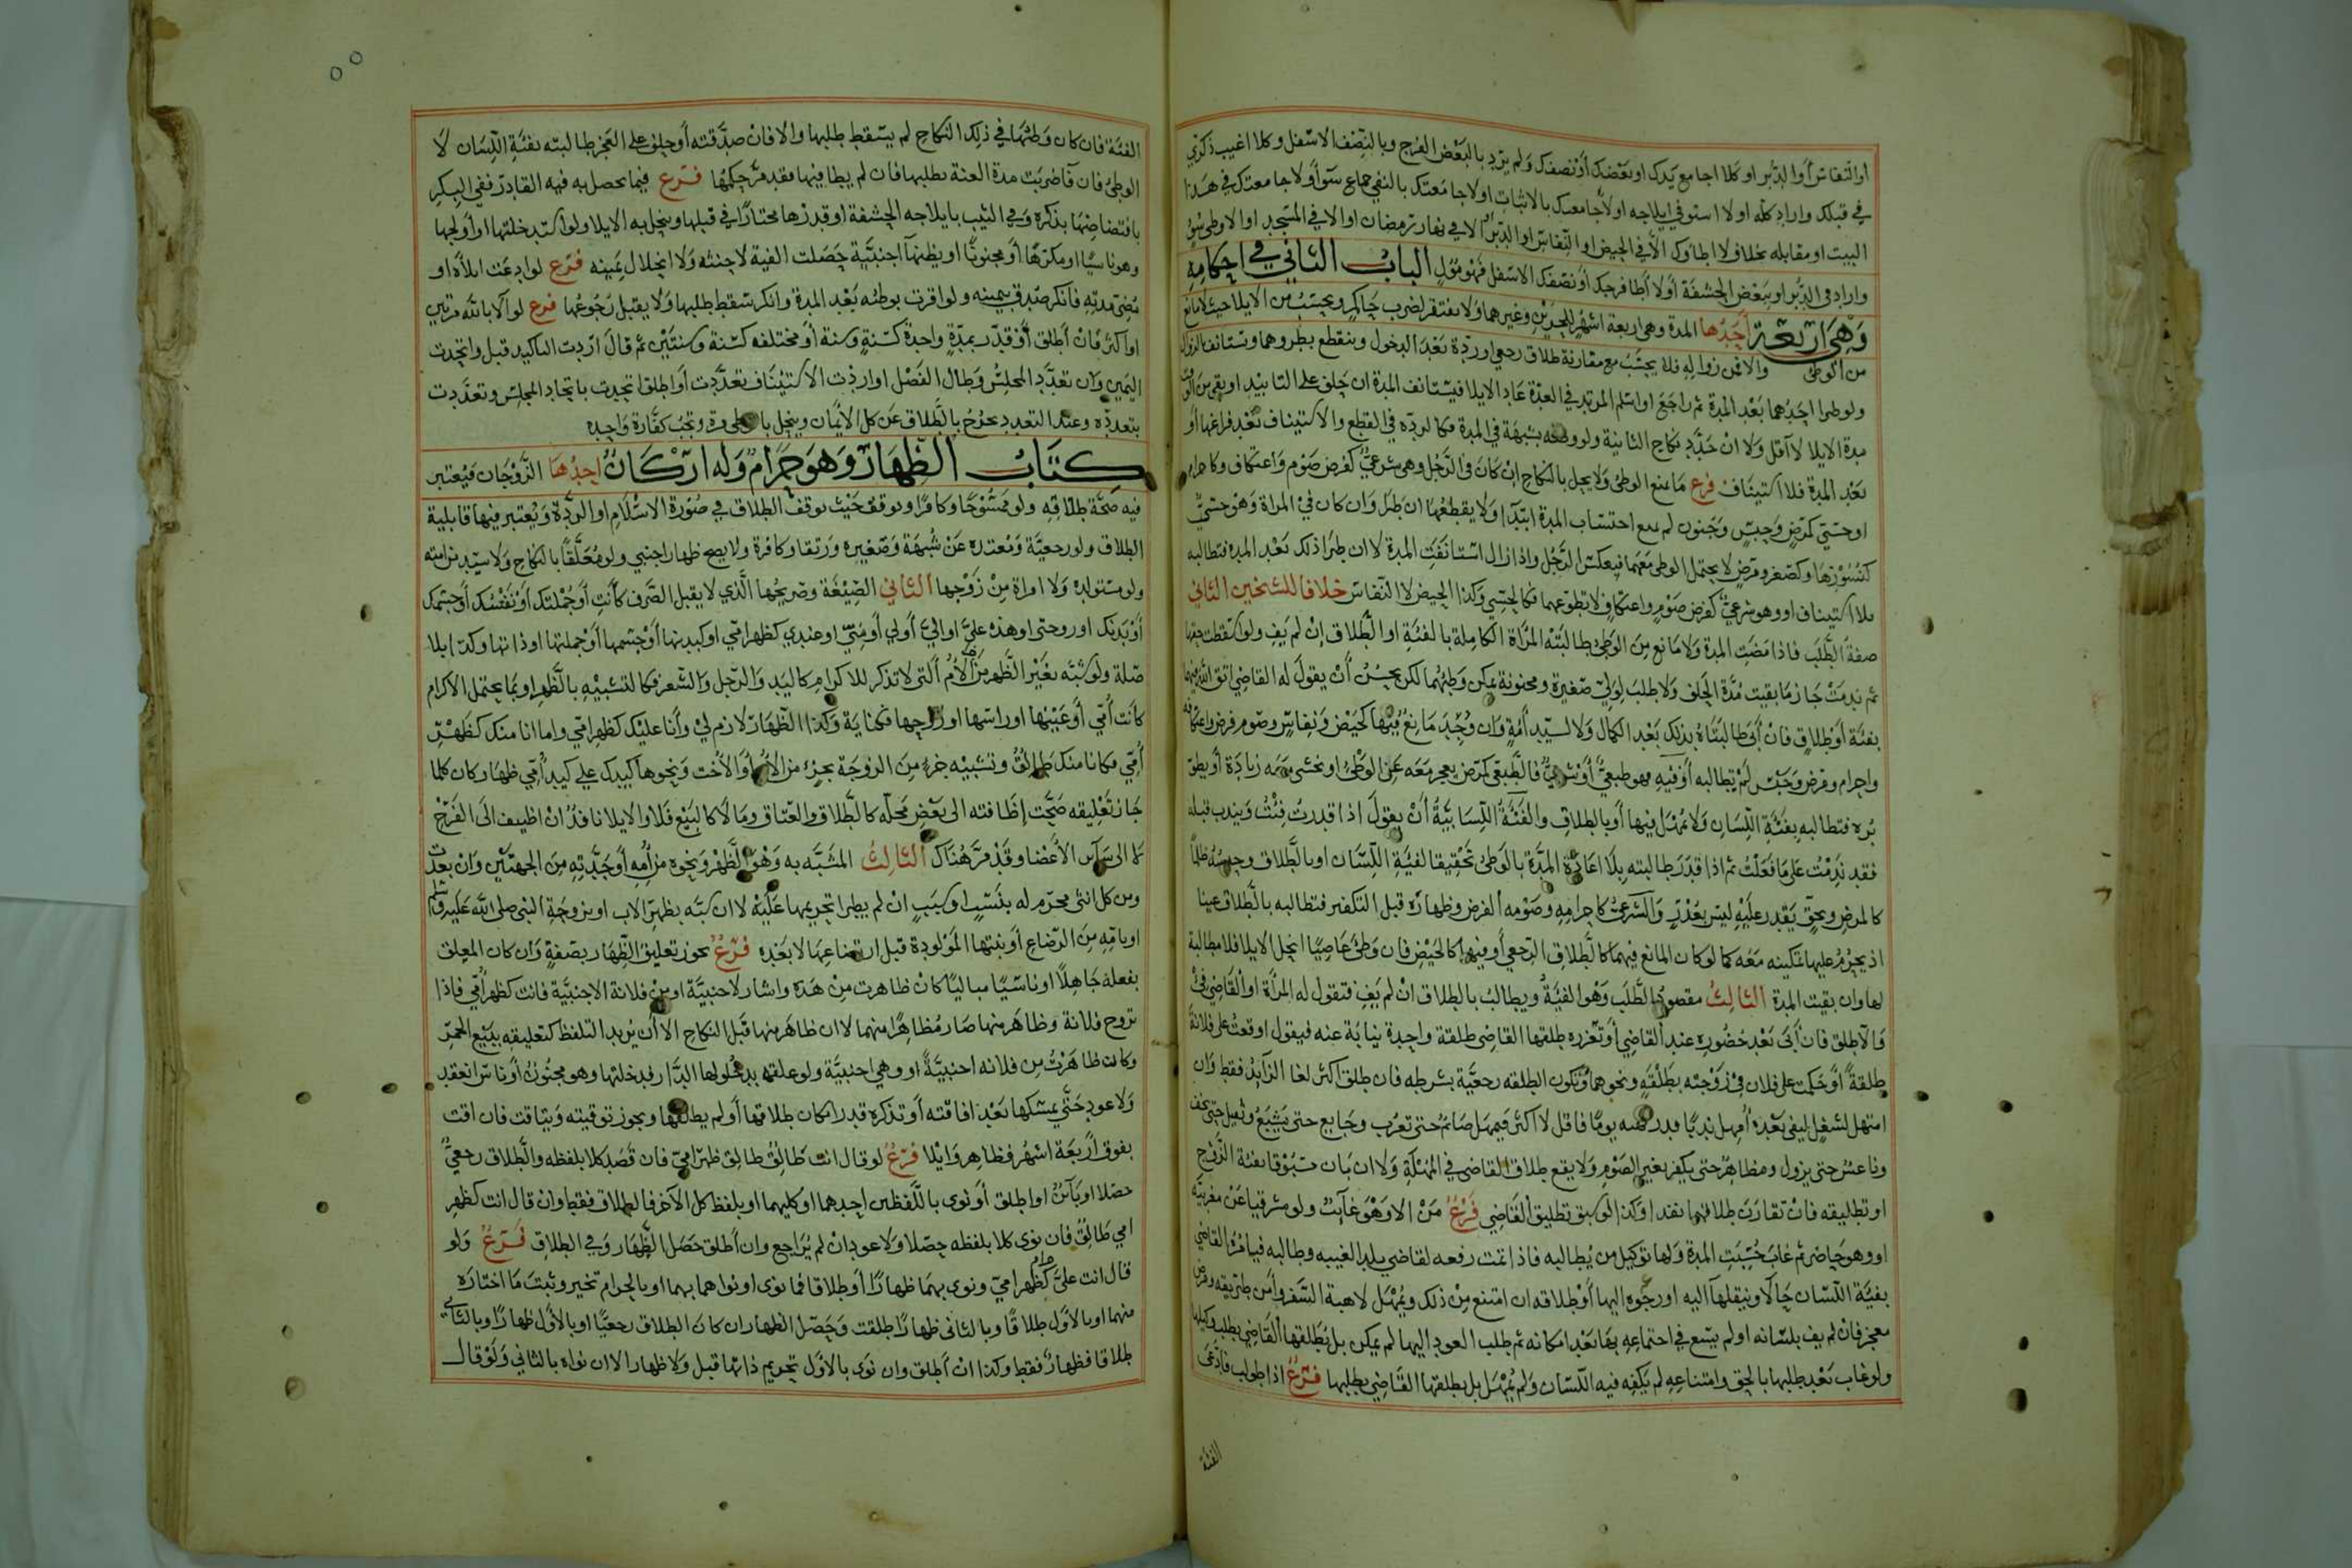 او النفاس أو الدبر او كلا اجامع يدك او بعضك أو نصفك ولم يرد بالبعض الفرج وبالنصف الاسفل وكلا اغيب ذكري
في قبلك واراد كله او لا استوفي ايلاجه اولا جامعتك بالاثبات اولا جامعتك بالنفي جماع سوأ ولا جامعتك في هذا
البيت او مقابله بخلاف لا اطاوك الا في الحيض او النفاس او الدبر الا في نهار رمضان او الا في المسجد او الا وطي سوء
واراد في الدبر او ببعض الحشفة أو لا أطا فرجك أو نصفك الاسفل فهو مول الباب الثاني في احكامه
وهي اربعة أحدها المدة وهي اربعة اشهر للحرين وغيرهما ولا تفتقر لضرب حاكم ويحتسب من الايلا حيث لا مانع
من الوطى والا فمن زواله فلا يحتسب مع مقارنة طلاق رجعي او ردة بعد الدخول وينقطع بطروهما وتستانف بالزوال
ولو طرا احدهما بعد المدة ثم راجع او اسلم المرتد في العدة عاد الايلا فيستانف المدة ان حلف على التابيد او بقي من
مدة الايلا لا أقل ولا ان جدد نكاح الثانية ولو وطئه بشبهة في المدة فكالردة في القطع والاستيناف بعد فراغها أو
بعد المدة فلا استيناف فرع ما يمنع الوطى ولا يحل بالنكاح ان كان في الرجل وهي شرعي كفرض صوم واعتكاف
او حسي كمرض وحبس وجنون لم يمنع احتساب المدة ابتدا ولا يقطعها ان طرا وان كان في المراة وهو حسي
كنشوزها وكصغر ومرض لا يحتمل الوطى معهما فبعكس الرجل واذا زال استانفت المدة لا ان طرا ذلك بعد المدة فتطالبه
بلا استيناف او وهو شرعي كفرض صوم واعتكاف لا تطوعهما فكالحسي وكذا الحيض لا النفاس خلافا للشيخين الثاني
صفة الطلب فاذا مضت المدة ولا مانع من الوطى طالبته المرأة الكاملة بالفئة او الطلاق ان لم يف ولو اسقطت حقها
ثم ندمت جاز ما بقيت مدة الحلف ولا طلب لولي صغيرة ومجنونة يمكن وطئهما لكن يحسن أن يقول له القاضي اتق الله
بفئة أو طلاق فان أبى طالبتاه بذلك بعد الكمال ولا لسيد أمة وان وجد مانع فيها كحيض ونفاس وصوم فرض واعتكافه
واحرام ومرض وحبس لم يطالبه أو فيه فهو طبعي أو شرعي فالطبعي كمرض يعجز معه عن الوطى او نخشى معه زيادة أو بطو
برء فتطالبه بفئة اللسان ولا يمهل فيها أو بالطلاق والفئة اللسانية أن يقول اذا قدرت فئت ويندب قبله
فقد ندمت على ما فعلت ثم اذا قدر طالبته بلا اعادة المدة بالوطى تحقيقا لفية اللسان او بالطلاق وحبسه ظلما
كالمرض وبحق يقدر عليه ليس بعذر والشرعي كاحرامه وصومه الفرض وظهاره قبل التكفير فتطالبه بالطلاق عينا
اذ يحرم عليها تمكينه معه كما لو كان المانع فيهما كالطلاق الرجعي أو فيها كالحيض فان وطئ عاصيا انحل الايلا فلا مطالبة
لها وان بقيت المدة الثالث مقصود الطلب وهو الفئة ويطالب بالطلاق ان لم يف فتقول له المرأة او القاضي فئ
والا طلق فان أبى بعد حضوره عند القاضي أو تعزره طلقها القاضي طلقة واحدة نيابة عنه فيقول اوقعت على فلانة
طلقة أو حكمت على فلان في زوجته بطلقة ونحوهما وتكون الطلقه رجعية بشرطه فان طلق اكثر لغا الزايد فقط وان
امتهل لشغل ليفي بعده أمهل ندبا قدر يوما فاقل لا اكثر فيمهل صايم حتى تغرب وجايع حتى يشبع وثقيل حتى يخف
وناعس حتى يزول ومظاهر حتى يكفر بغير الصوم ولا يقع طلاق القاضي في المهلة ولا ان بان مسبوقا بفئة الزوج
او تطليقه فان تقارن طلاقهما نفذا وكذا لو سبق تطليق القاضي فرع من الا وهو غائب ولو مشرقيا عن مغربية
او وهو حاضر ثم غاب حسبت المدة ولها توكيل من يطالبه فاذا تمت رفعه لقاضي بلد الغيبه وطالبه فيامره القاضي
بفية اللسان حالا وينقلها اليه او رجوعه اليها أو طلاقه ان امتنع من ذلك ويمهل لاهبة السفر وأمن طريقه ومرض
معجز فان لم يف بلسانه او لم يسع في اجتماعه بها بعد امكانه ثم طلب العود اليها لم يمكن بل يطلقها القاضي بطلب وكيلها
ولو غاب بعد طلبها بالحق وامتناعه لم يكفه فيه اللسان ولم يمهل بل يطلقها القاضي بطلبها فرع اذا طولب فادعى
الفئة
الفئة فان كان وطئها في ذلك النكاح لم يسقط طلبها والا فان صدقته أو حلف على العجز طالبته بفئة اللسان لا
الوطئ فان ضربت مدة العنة بطلبها فان لم يطا فيها فقد مر حكمها فرع فيما يحصل به فيه القادر ففي البكر
بافتضاضها بذكره وفي الثيب بايلاجه الحشفة او قدرها مختارا في قبلها وينحل به الايلا ولو استدخلتها او أولجها
وهو ناسيا او مكرها أو مجنونا او يظنها اجنبية حصلت الفية لا حنثه ولا انحلال يمينه فرع لو ادعت ايلاه او
مضي مدته فانكر صدق بيمينه ولو اقرت بوطئه بعد المدة وانكر سقط طلبها ولا يقبل رجوعها فرع لو آلا بالله مرتين
او اكثر فان أطلق أو قدر بمدة واحدة كسنة وسنة أو مختلفه كسنة وسنتين ثم قال اردت التاكيد قبل واتحدت
اليمين وان تعدد المجلس وطال الفصل او اردت الاستيناف تعددت أو اطلق اتحدت باتحاد المجلس وتعددت
بتعدده وعند التعدد يخرج بالطلاق عن كل الايمان وينحل بالوطى وتجب كفارة واحده
كتاب الظهار وهو حرام وله اركان احدها الزوجان فيعتبر
فيه صحة طلاقه ولو ممسوحا وكافرا وتوقف حيث توقف الطلاق في صورة الاسلام او الردة ويعتبر فيها قابلية
الطلاق ولو رجعية ومعتده عن شبهة وصغيره ورتقا وكافرة ولا يصح ظهار اجنبي ولو معلقا بالنكاح ولا سيد من امته
ولو مستولدة ولا امراة من زوجها الثاني الصيغة وصريحها الذي لا يقبل الصرف كأنت أو جملتك أو نفسك أو جسمك
أو بدنك او روحتى او هذه علي او الي أو لي أو مني او عندي كظهر امي او كبدنها أو جسمها أو جملتها او ذاتها وكذا بلا
صلة ولو شبه بغير الظهر من الأم التي لا تذكر للاكرام كاليد والرجل والشعر فكالتشبيه بالظهر او بما يحتمل الاكرام
كانت أمي أو عينها او راسها او روحها فكناية وكذا الظهار لازم لي وأنا عليك كظهر امي واما انا منك كظهر
أمي فكانا منك طالق وتشبيه جزء من الزوجة بجزء من الأم أو الأخت ونحوها كيدك علي كيد أمي ظهار كان كلما
جاز تعليقه صحت إضافته الى بعض محله كالطلاق والعتاق وما لا كالبيع فلا والايلا نافذ ان اضيف الى الفرج
لا الى ساير الأعضا وقد مر هناك الثالث المشبه به وهو الظهر ونحوه من أمه أو جدته من الجهتين وان بعدت
ومن كل انثى محرم له بنسب او سبب ان لم يطرا تحريمها عليه لا ان شبه بظهر الاب او بزوجة النبي صلى الله عليه وسلم
او بامه من الرضاع أو بنتها المولودة قبل ارتضاعها لا بعده فرع يجوز تعليق الظهار بصفة وان كان المعلق
بفعله جاهلا او ناسيا مباليا كان ظاهرت من هذه واشار لاجنبية او من فلانة الاجنبية فانت كظهر أمي فاذا
تزوج فلانة وظاهر منها صار مظاهرا منهما لا ان ظاهر منها قبل النكاح الا أن يريد التلفظ كتعليقه ببيع الخمر
وكان ظاهرت من فلانه اجنبية او وهي اجنبية ولو علقه بدخولها الدار فدخلتها وهو مجنون أو ناس انعقد
ولا عود حتى يمسكها بعد افاقته أو تذكره قدر امكان طلاقها أو لم يطلقها ويجوز توقيته ويتاقت فان اقت
بفوق اربعة اشهر فظاهر وايلا فرع لو قال انت طالق طالق ظهر امي فان قصد كلا بلفظه والطلاق رجعي
حصلا او باين او اطلق أو نوى باللفظين احدهما او كليهما او بلفظ كل الآخر فالطلاق فقط وان قال انت كظهر
امي طالق فان نوى كلا بلفظه حصلا ولا عود ان لم يراجع وان أطلق حصل الظهار وفي الطلاق فرع ولو
قال انت علي حرام كظهر امي ونوى بهما ظهارا أو طلاقا فما نوى او نواهما بهما او بالحرام تخير وثبت ما اختاره
منهما او بالاول طلاقا وبالثاني ظهارا طلقت وحصل الظهار ان كان الطلاق رجعيا او بالأول ظهارا وبالثاني
طلاقا فظهار فقط وكذا ان أطلق وان نوى بالاول تحريم ذاتها قبل ولا ظهار الا ان نواه بالثاني ولو قال